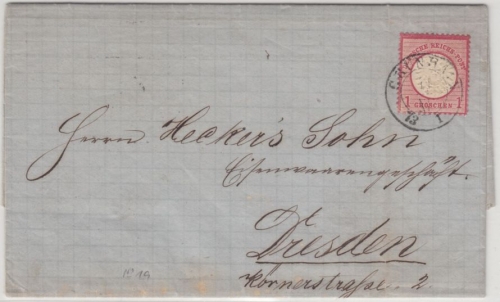 DEUTSCHE REICHS-POST
1 GROSCHEN 1
Herrn Hecker's Sohn
Eisenwaarengeschäft.
Dresden
Körnerstraße. 2
No 19